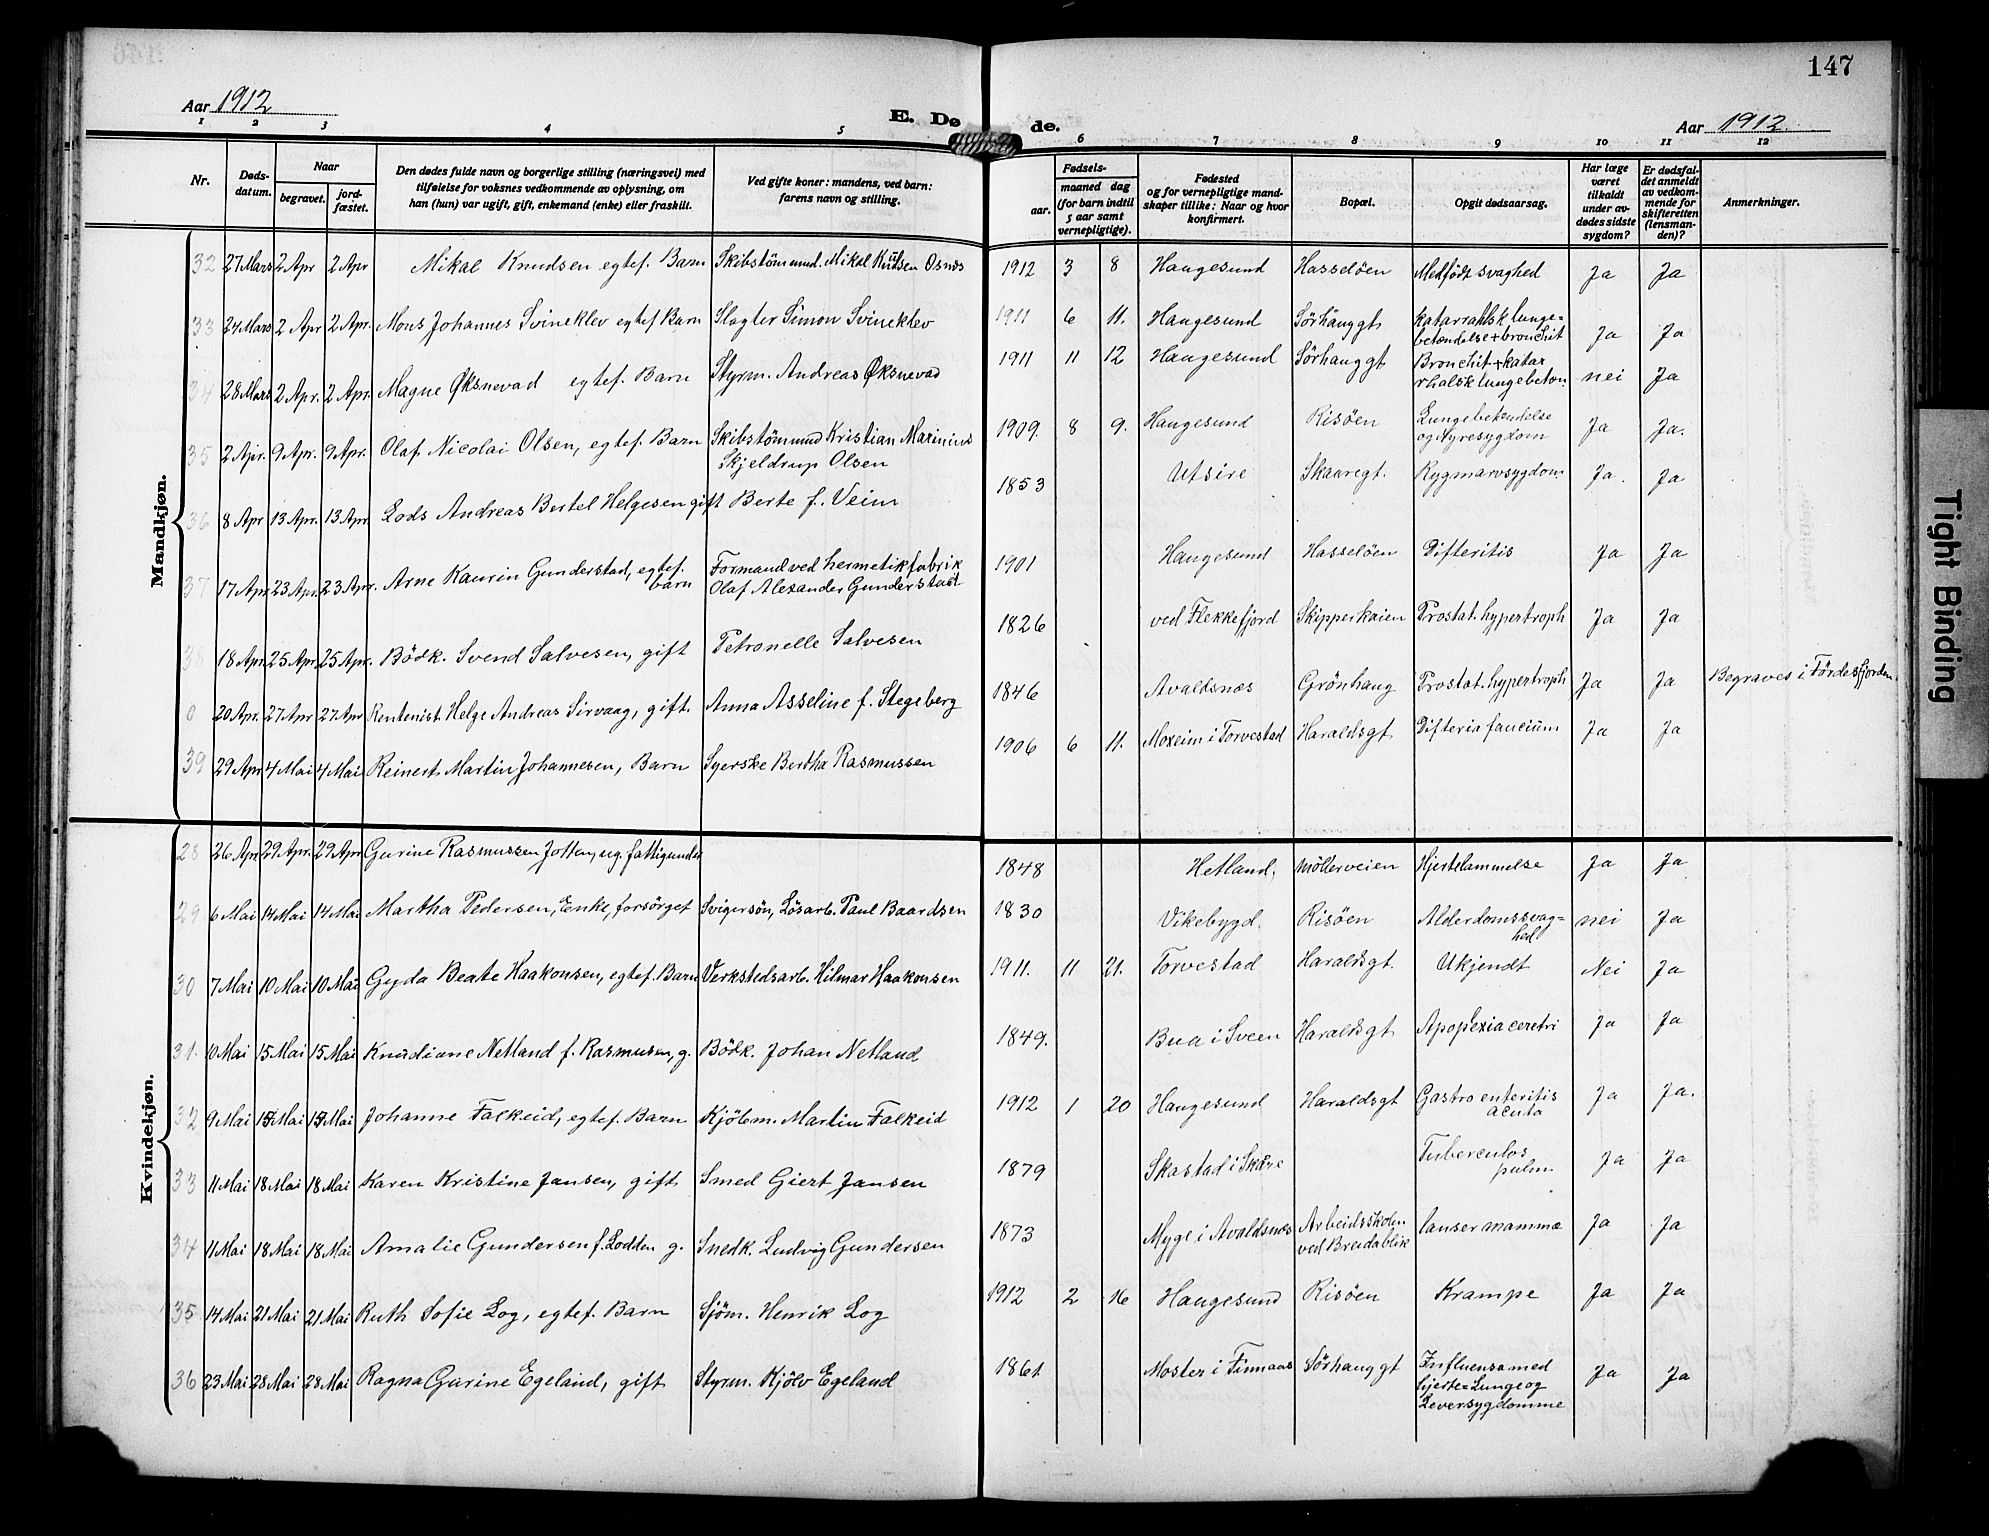 147
Aar 1912
E. Dø
de.
Aar 1912.
1 2 3 4 5 6 7 8 9 10 11 12
Nr.
Døds-
datum.
Naar
begravet.
jord-
fæstet.
Den dødes fulde navn og borgerlige stilling (næringsvei) med
tilføielse for voksnes vedkommende av oplysning, om
han (hun) var ugift, gift, enkemand (enke) eller fraskilt.
Ved gifte koner: mandens, ved barn:
farens navn og stilling.
Fødsels-
aar.
maaned dag
(for barn indtil
5 aar samt
vernepligtige).
Fødested
og for vernepligtige mand-
skaper tillike: Naar og hvor
konfirmert.
Bopæl.
Opgit dødsaarsag.
Har læge
været
tilkaldt
under av-
dødes sidste
sygdom?
Er dødsfal-
det anmeldt
av vedkom-
mende for
skifteretten
(lensman-
den)?
Anmerkninger.
Mandkjøn.
32 27 Mars 2 Apr 2 Apr Mikal Knudsen egtef. Barn Skibstömmd. Mikal Knutsen Osnes 1912 3 8 Haugesund Hasselöen Medfödt svaghed Ja Ja
33 24 Mars 2 Apr 2 Apr. Mons Johannes Svineklev egtef Barn Slagter Simon Svineklev 1911 6 11. Haugesund Sörhauggt katarrahlsk lunge=
betændelse + bronchit Ja Ja
34 28 Mars 2 Apr. 2 Apr. Magne Øksnevad egtef. Barn Styrm. Andreas Øksnevad 1911 11 12 Haugesund Sörhauggt Bronchit + katar
rhalsk lungebetæn. nei Ja
35 2 Apr. 9 Apr. 9 Apr. Olaf Nicolai Olsen, egtef. Barn Skibstömmd Kristian Marinius
Skjeldrup Olsen 1909. 8 9. Haugesund Risöen Lungebetændelse
og Nyresygdom Ja Ja.
36 8 Apr 13 Apr. 13 Apr. Lods Andreas Bertel Helgesen gift Berte f. Veim 1853 Utsire Skaaregt. Rygmarvsygdom. Ja. Ja
37 17 Apr 23 Apr. 23 Apr. Arne Kaurin Gunderstad, egtef.
barn Formand ved hermetikfabrik
Olaf Alexander Gunderstad 1901 Haugesund Hasselöen Difteritis Ja Ja
38 18 Apr. 25 Apr. 25 Apr. Bödk. Svend Salvesen, gift Petronelle Salvesen 1826 ved Flekkefjord Skipperkaien Prostat. hypertroph Ja Ja
0 20 Apr. 27 Apr 27 Apr Rentenist Helge Andreas Sirvaag, gift. Anna Asseline f. Stegeberg 1846 Avaldsnæs Grönhaug Prostat. hypertroph Ja Ja Begraves i Fördesfjorden.
39 29 Apr 4 Mai 4 Mai Reinert Martin Johannesen, Barn Syerske Bertha Rasmussen 1906 6 11. Moxeim i Torvestad Haraldsgt Difteria faucium Ja Ja
Kvindekjøn.
28 26 Apr 29 Apr. 29 Apr Gurine Rasmussen Jotten, ug. fattigunder 1848 Hetland. möllerveien Hjertelammelse Ja Ja
29 6 Mai 14 Mai 14 Mai Martha Pedersen, Enke, forsörget Svigersön, Lösarb. Paul Baardsen 1830 Vikebygd. Risöen Alderdomssvag=
hed nei Ja
30 7 Mai 10 Mai 10 Mai Gyda Beate Haakonsen, egtef. Barn Verkstedsarb. Hilmar Haakonsen 1911. 11 21. Torvestad Haraldsgt. Ukjendt Nei Ja
31. 10 Mai 15 Mai 15 Mai Knudiane Netland f. Rasmussen, g. Bödk. Johan Netland 1849. Bua i Sveen Haraldsgt Apoplexia ceretri Ja Ja
32 9 Mai 15 Mai 15 Mai Johanne Falkeid, egtef. Barn Kjöbm. Martin Falkeid 1912 1 20 Haugesund Haraldsgt Gastro enteritis
acuta Ja Ja.
33 11 Mai 18 Mai 18 Mai Karen Kristine Jansen, gift Smed Giert Jansen 1879 Skastad i Skåre Tuberculos
pulm. Ja Ja
34 11 Mai 18 Mai 18 Mai Amalie Gundersen f. Lodden g. Snedk. Ludvig Gundersen 1873 Myge i Avaldsnæs Arbeidsskolen
ved Breidablik canser mammæ Ja Ja
35 14 Mai 21 Mai 21 Mai Ruth Sofie Log, egtef. Barn Sjöm. Henrik Log 1912 2 16 Haugesund Risöen Krampe Ja Ja
36 23 Mai 28 Mai 28 Mai Ragna Gurine Egeland, gift Styrm. Kjölv Egeland 1861 Moster i Finnaas Sörhauggt Influensa med
hjerte= Lunge og
Leversygdomme Ja Ja
Tight Binding